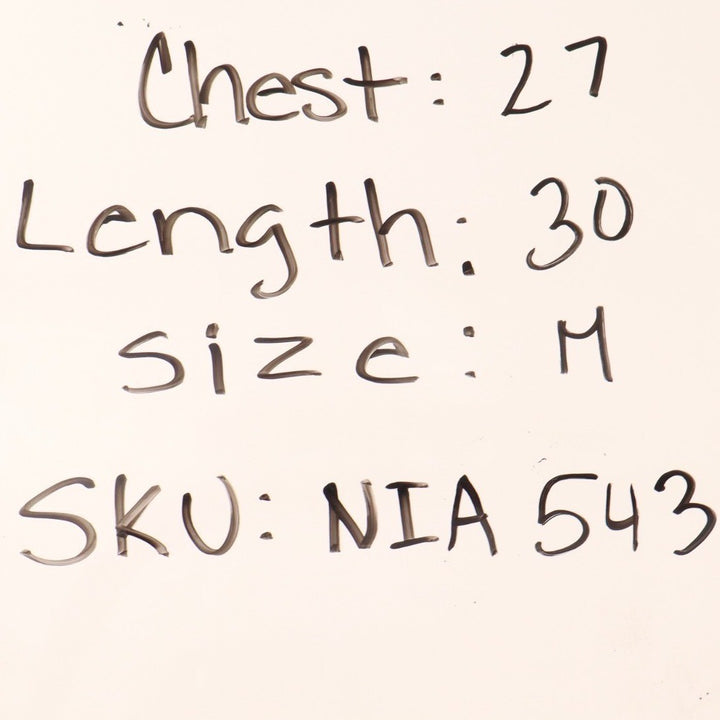 Chest: 27
Length: 30
Size: M
SKU: NIA 543